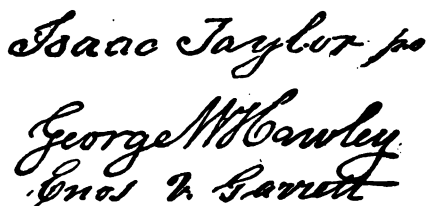 Isaac Taylor
George W Hawley
Enos Garrett